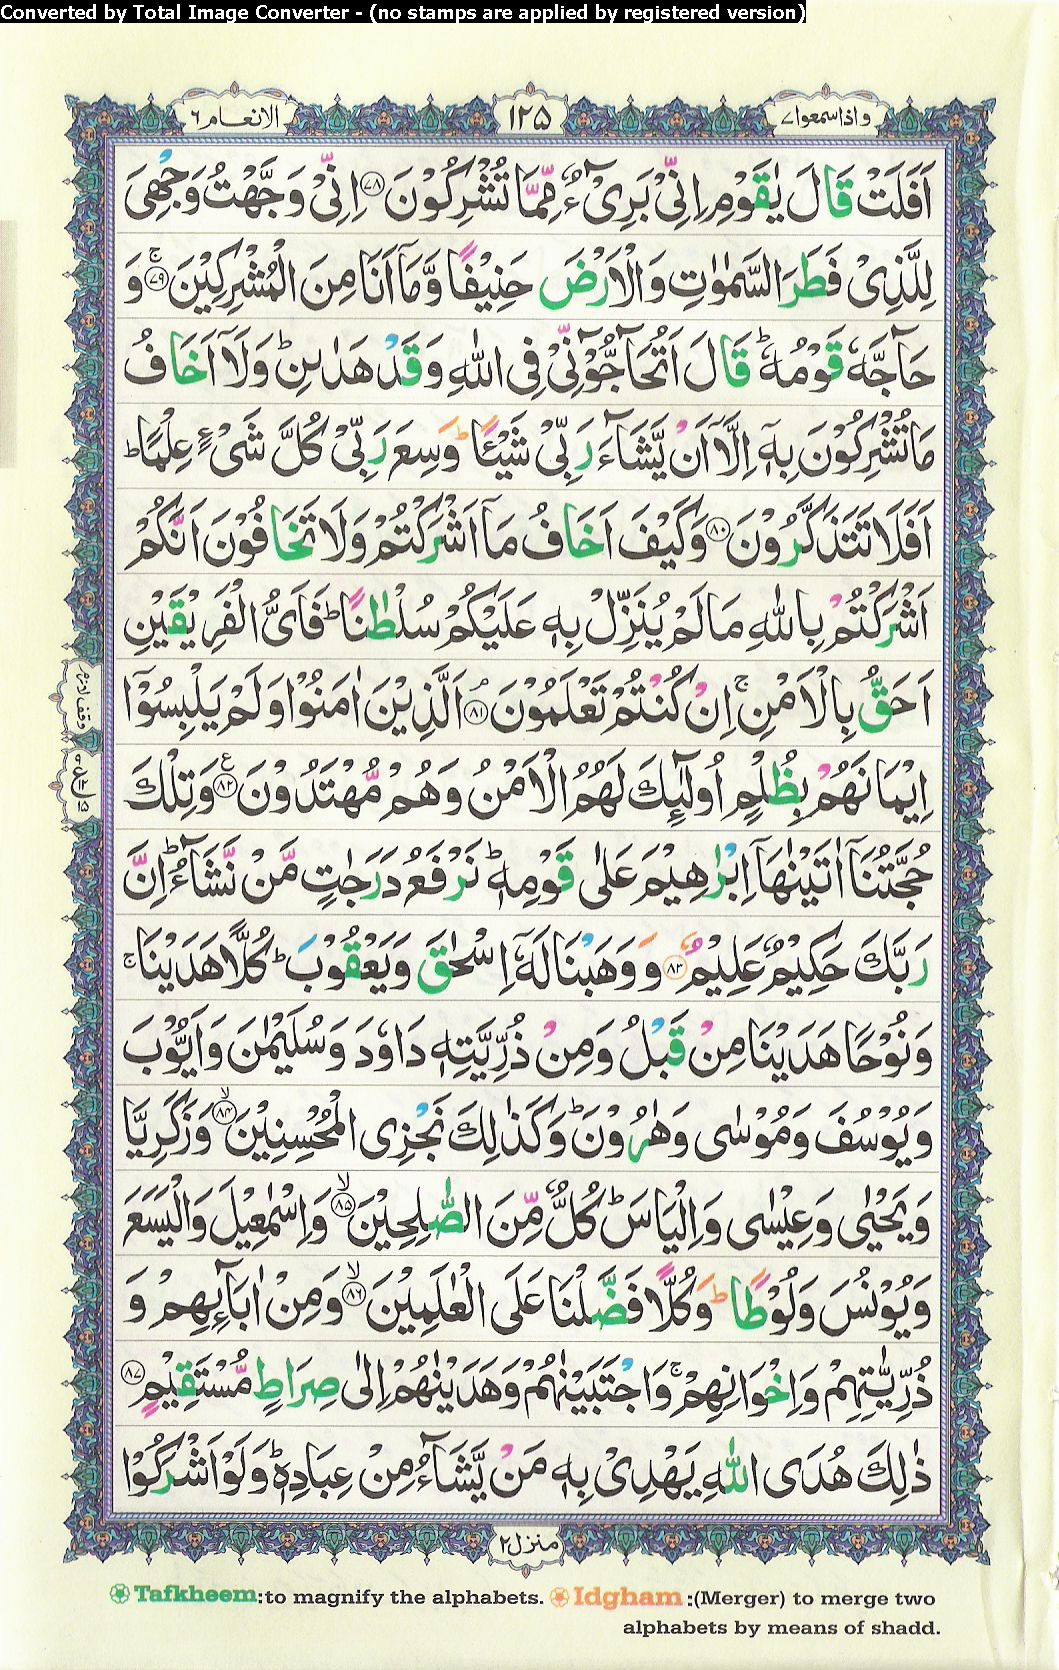 Converted by Total Image Converter - (no stamps are applied by registered version)
واذاسمعوا٧ ١٢٥ الانعام٦
اَفَلَتْ قَالَ یٰقَوْمِ اِنِّیْ بَرِیْٓءٌ مِّمَّا تُشْرِكُوْنَ ﴿۷۸﴾ اِنِّیْ وَجَّهْتُ وَجْهِیَ
لِلَّذِیْ فَطَرَ السَّمٰوٰتِ وَالْاَرْضَ حَنِیْفًا وَّمَاۤ اَنَا مِنَ الْمُشْرِكِیْنَ ﴿۷۹﴾ۚ وَ
حَآجَّهٗ قَوْمُهٗ ؕ قَالَ اَتُحَآجُّوْٓنِّیْ فِی اللّٰهِ وَقَدْ هَدٰىنِ ؕ وَلَاۤ اَخَافُ
مَا تُشْرِكُوْنَ بِهٖۤ اِلَّاۤ اَنْ یَّشَآءَ رَبِّیْ شَیْـًٔا ؕ وَسِعَ رَبِّیْ كُلَّ شَیْءٍ عِلْمًا ؕ
اَفَلَا تَتَذَكَّرُوْنَ ﴿۸۰﴾ وَكَیْفَ اَخَافُ مَاۤ اَشْرَكْتُمْ وَلَا تَخَافُوْنَ اَنَّكُمْ
اَشْرَكْتُمْ بِاللّٰهِ مَا لَمْ یُنَزِّلْ بِهٖ عَلَیْكُمْ سُلْطٰنًا ؕ فَاَیُّ الْفَرِیْقَیْنِ
اَحَقُّ بِالْاَمْنِ ۚ اِنْ كُنْتُمْ تَعْلَمُوْنَ ﴿۸۱﴾ۘ اَلَّذِیْنَ اٰمَنُوْا وَلَمْ یَلْبِسُوْۤا
اِیْمَانَهُمْ بِظُلْمٍ اُولٰٓئِكَ لَهُمُ الْاَمْنُ وَهُمْ مُّهْتَدُوْنَ ﴿۸۲﴾ ع وَتِلْكَ
حُجَّتُنَاۤ اٰتَیْنٰهَاۤ اِبْرٰهِیْمَ عَلٰی قَوْمِهٖ ؕ نَرْفَعُ دَرَجٰتٍ مَّنْ نَّشَآءُ ؕ اِنَّ
رَبَّكَ حَكِیْمٌ عَلِیْمٌ ﴿۸۳﴾ وَوَهَبْنَا لَهٗۤ اِسْحٰقَ وَیَعْقُوْبَ ؕ كُلًّا هَدَیْنَا ۚ
وَنُوْحًا هَدَیْنَا مِنْ قَبْلُ وَمِنْ ذُرِّیَّتِهٖ دَاوٗدَ وَسُلَیْمٰنَ وَاَیُّوْبَ
وَیُوْسُفَ وَمُوْسٰی وَهٰرُوْنَ ؕ وَكَذٰلِكَ نَجْزِی الْمُحْسِنِیْنَ ﴿۸۴﴾ۙ وَزَكَرِیَّا
وَیَحْیٰی وَعِیْسٰی وَاِلْیَاسَ ؕ كُلٌّ مِّنَ الصّٰلِحِیْنَ ﴿۸۵﴾ۙ وَاِسْمٰعِیْلَ وَالْیَسَعَ
وَیُوْنُسَ وَلُوْطًا ؕ وَكُلًّا فَضَّلْنَا عَلَی الْعٰلَمِیْنَ ﴿۸۶﴾ۙ وَمِنْ اٰبَآئِهِمْ وَ
ذُرِّیّٰتِهِمْ وَاِخْوَانِهِمْ ۚ وَاجْتَبَیْنٰهُمْ وَهَدَیْنٰهُمْ اِلٰی صِرَاطٍ مُّسْتَقِیْمٍ ﴿۸۷﴾
ذٰلِكَ هُدَی اللّٰهِ یَهْدِیْ بِهٖ مَنْ یَّشَآءُ مِنْ عِبَادِهٖ ؕ وَلَوْ اَشْرَكُوْا
منزل٢
Tafkheem:to magnify the alphabets. Idgham :(Merger) to merge two
alphabets by means of shadd.